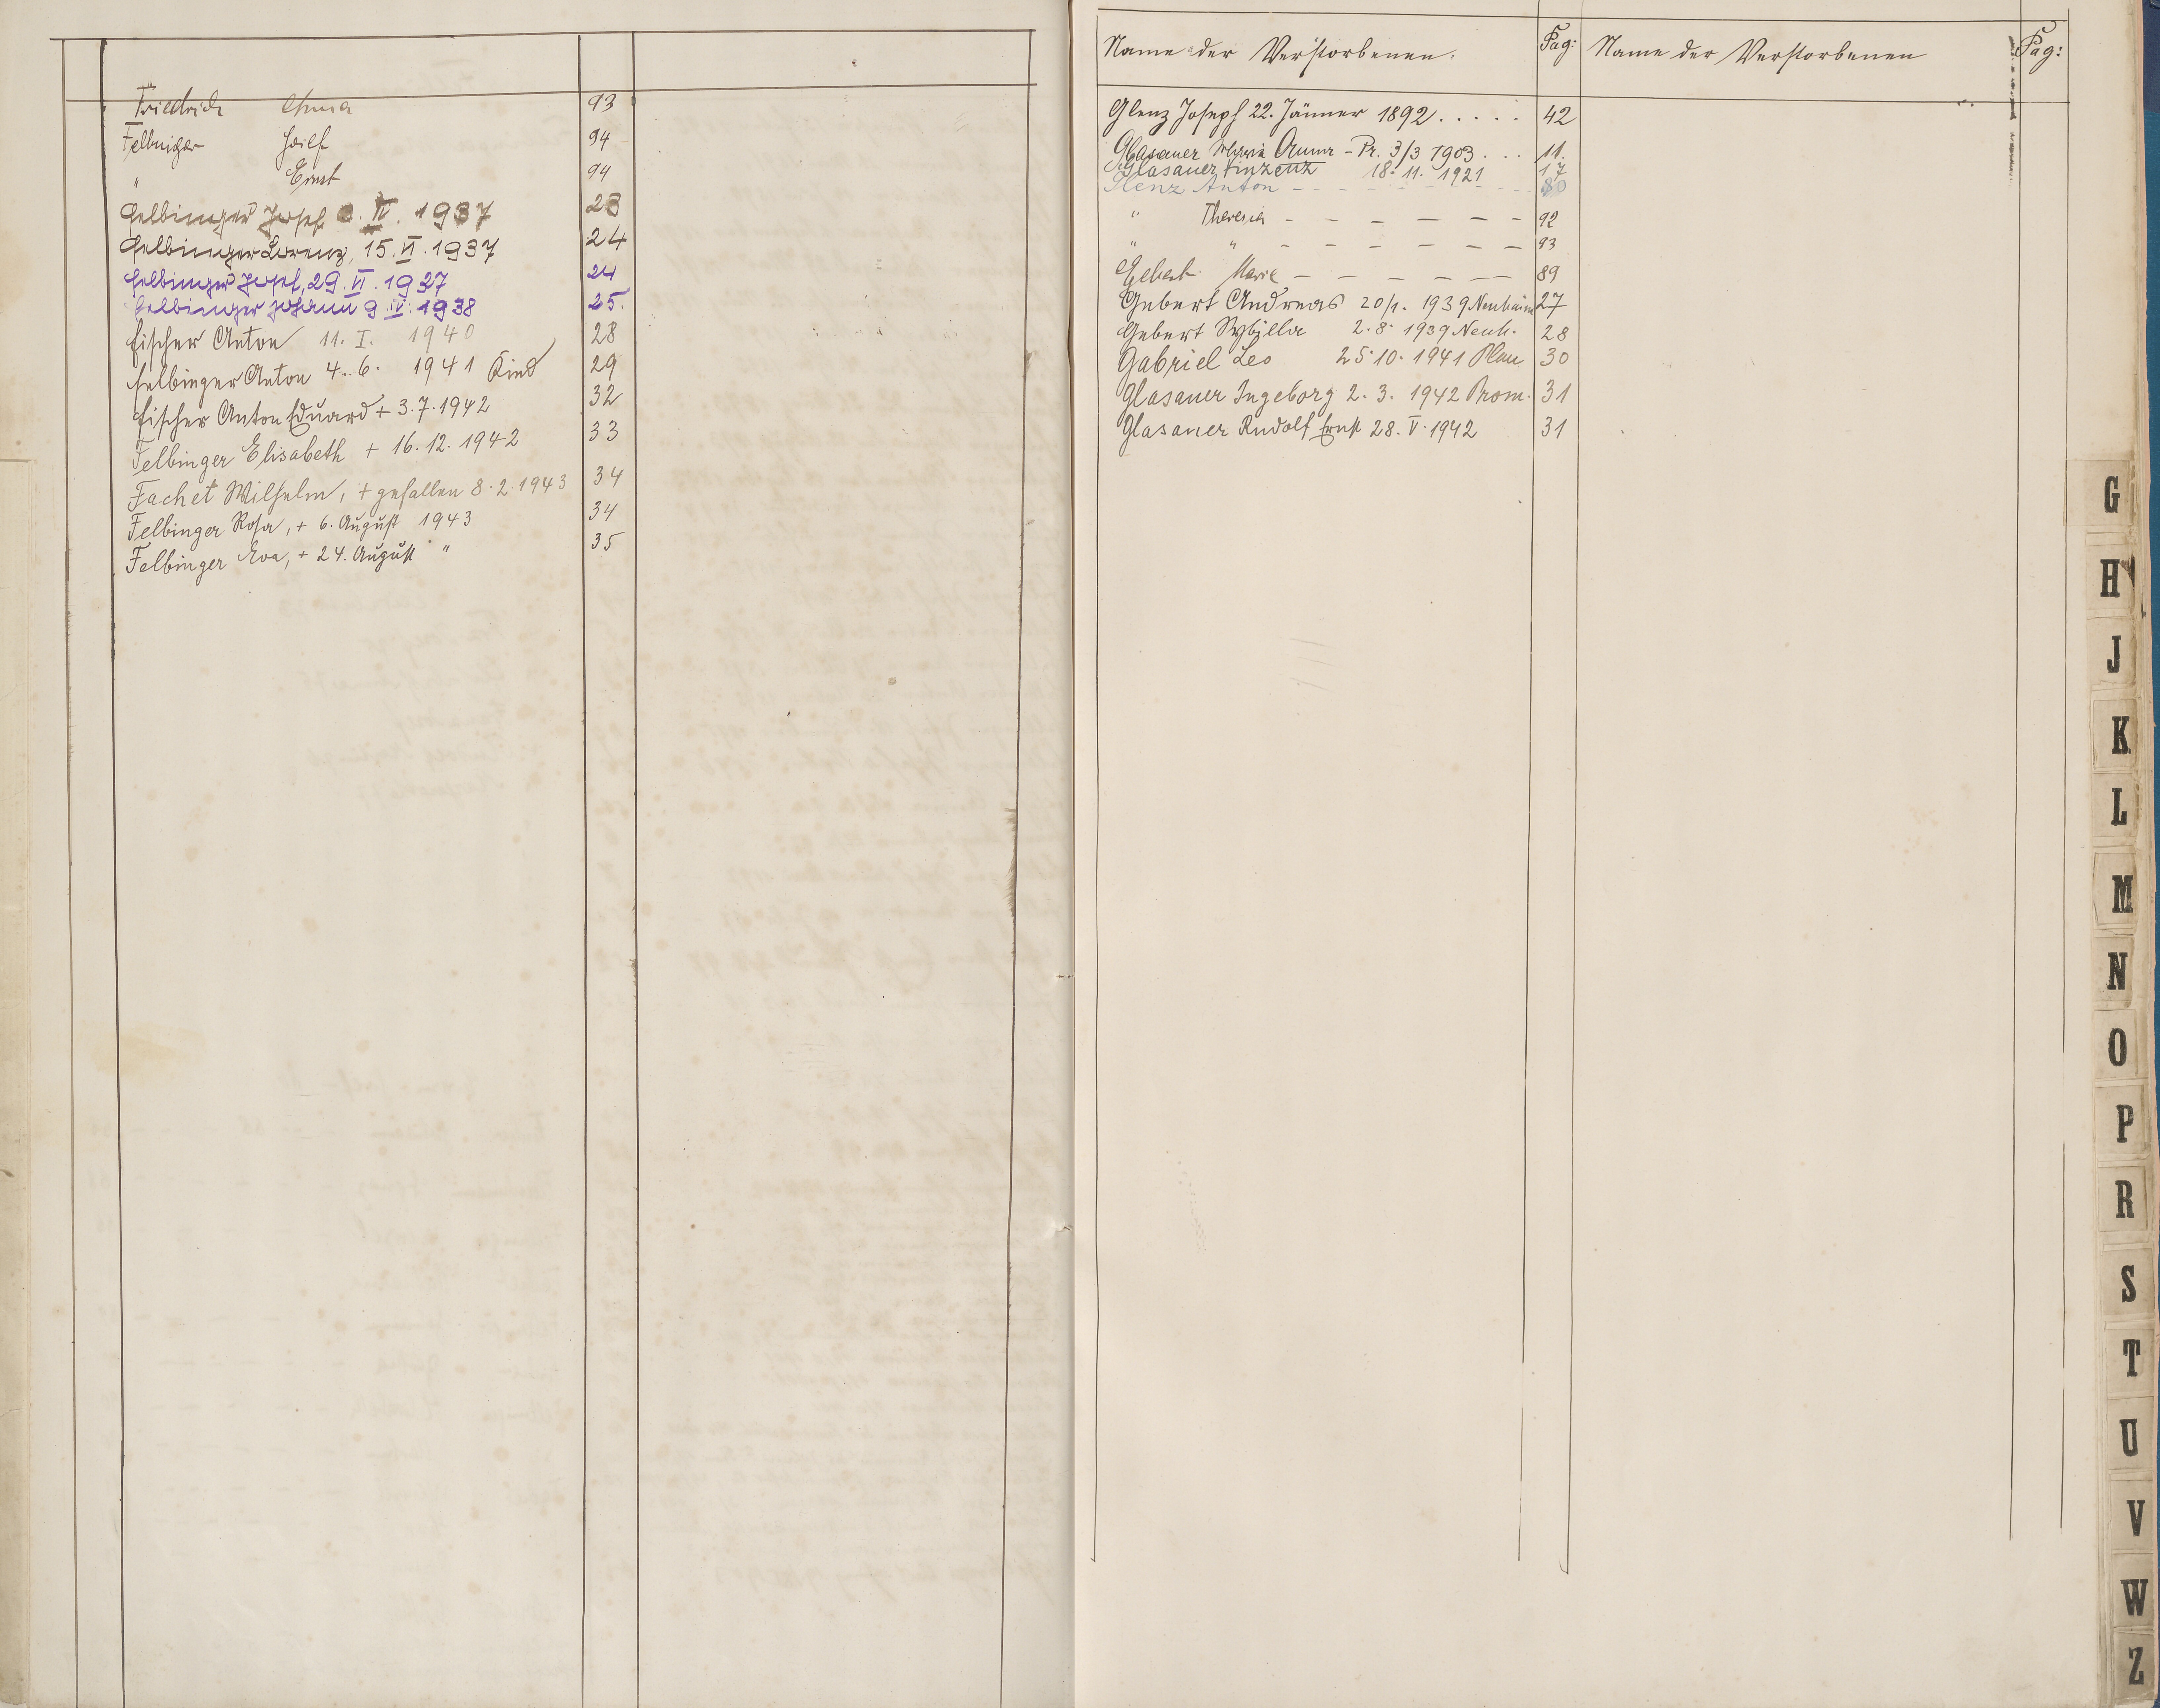 Friedrich Anna 93
Felbinger Josef 94
" Ernst 94
Felbinger Josef . IV. 1937 23
Felbinger Lorenz, 15. VI. 1937 24
Felbinger Josef, 29. VI. 1937 24
Felbinger Johann 9. IV. 1938 25.
Fischer Anton 11. I. 1940 28
Felbinger Anton 4. 6. 1941 Kind 29
Fischer Anton Eduard + 3.7.1942 32
Felbinger Elisabeth + 16.12.1942 33
Fachet Wilhelm, + gefallen 8.2.1943 34
Felbinger Rosa, + 6. August 1943 34
Felbinger Eva, + 24. August " 35
Name der Verstorbenen. Pag: Name der Verstorbenen Pag:
Glenz Joseph 22. Jänner 1892 . . . . . 42
Glasauer Maria Anna - Pr. 3/3 1903 . . . 11.
Glasauer Vinzenz 18. 11. 1921 17
Glenz Anton - - - - - - - 80
" Theresia - - - - - - 92
" " - - - - - - 93
Gebert Marie - - - - - - 89
Gebert Andreas 20/1. 1939 Neuhäusl 27
Gebert Sybilla 2. 8. 1939 Neuh. 28
Gabriel Leo 25. 10. 1941 Plan 30
Glasauer Ingeborg 2. 3. 1942 Prom. 31
Glasauer Rudolf Ernst 28. V. 1942 31
G
H
J
K
L
M
N
O
P
R
S
T
U
V
W
Z